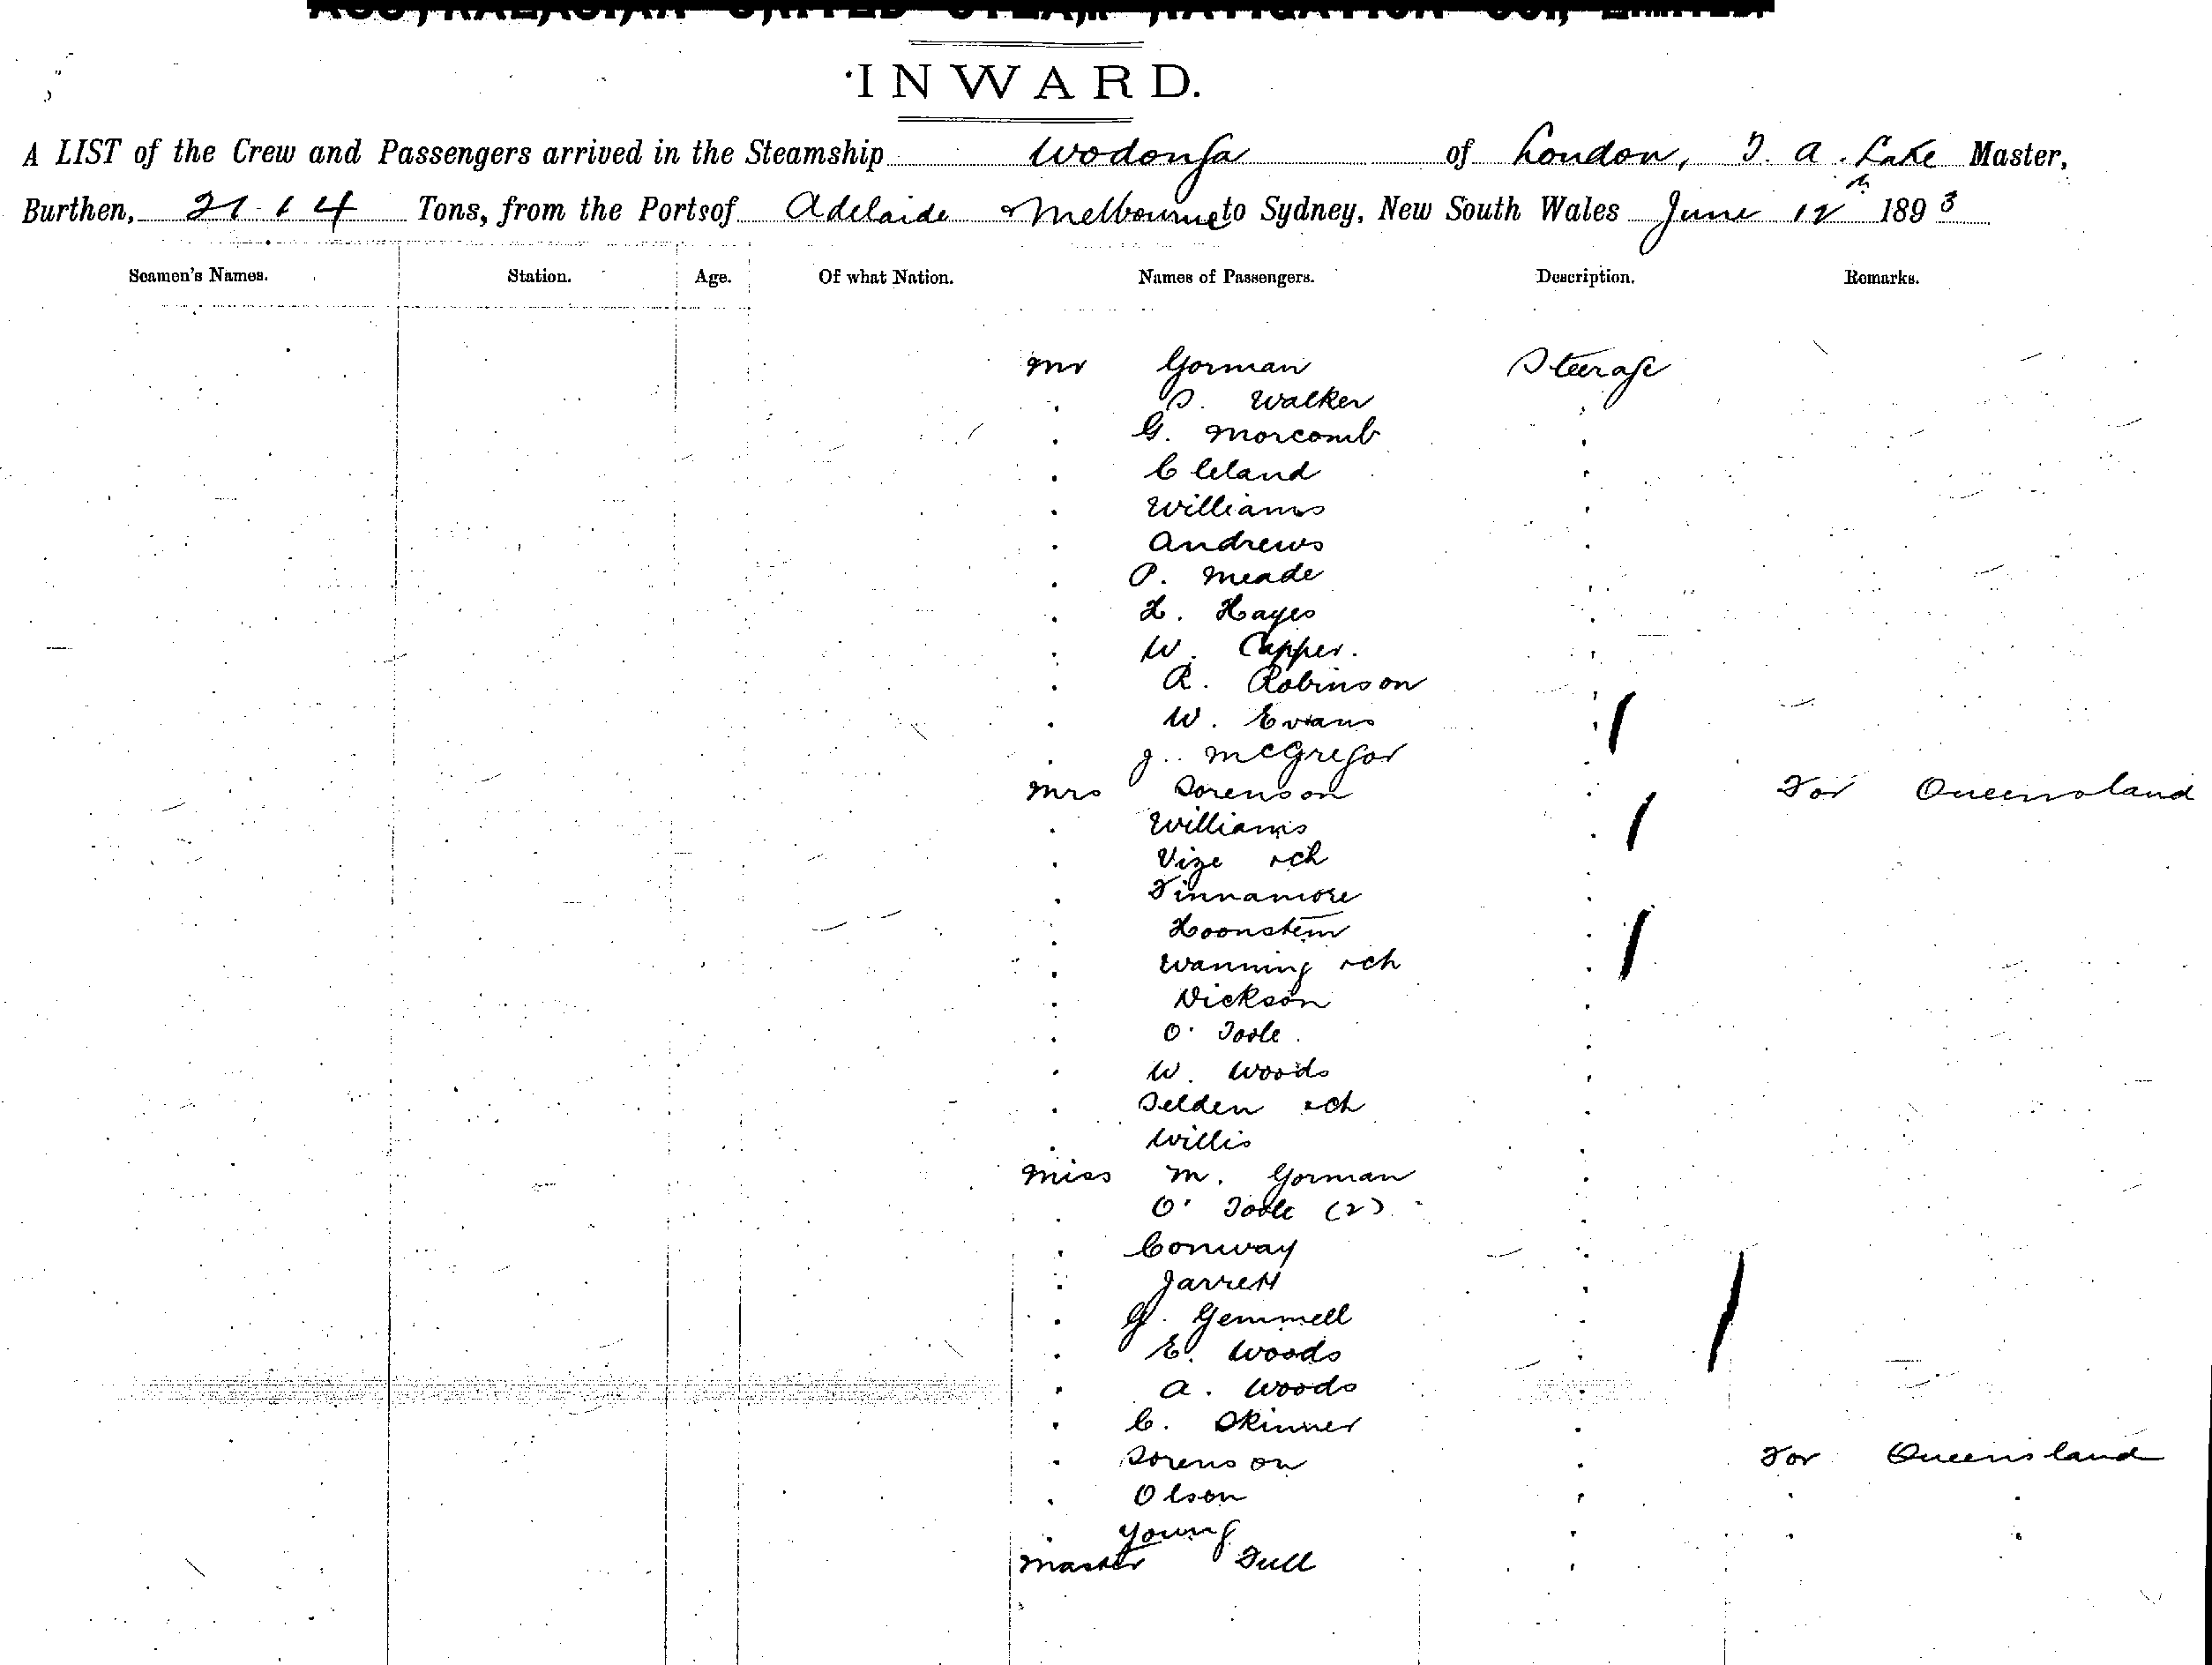 AUSTRALASIAN UNITED STEAM NAVIGATION CO., LIMITED.
INWARD.
A LIST of the Crew and Passengers arrived in the Steamship Wodonga of London, T. A. Lake Master,
Burthen, 21 14 Tons, from the Ports of Adelaide & Melbourne to Sydney, New South Wales June 12th 1893
Seamen's Names. Station. Age. Of what Nation. Names of Passengers. Description. Remarks.
Mr Gorman Steerage
. S. Walker .
. G. Morcomb .
. Cleland .
. Williams .
. Andrews .
. P. Meade .
. H. Hayes .
. W. Capper. .
. R. Robinson .
. W. Evans .
. J. McGregor
Mrs Sorenson . For Queensland
. Williams .
. Vize & ch .
. Finnamore .
. Hoonstein .
. Wanning & ch .
. Dickson .
. O'Toole .
. W. Woods .
. Selden & ch .
. Willis .
Miss M. Gorman .
. O'Toole (2) .
. Conway .
. Jarrett .
. G. Gemmell .
. E. Woods .
. A. Woods .
. C. Skinner .
. Sorenson . For Queensland
. Olson . . .
. Young . . .
Master Tull .